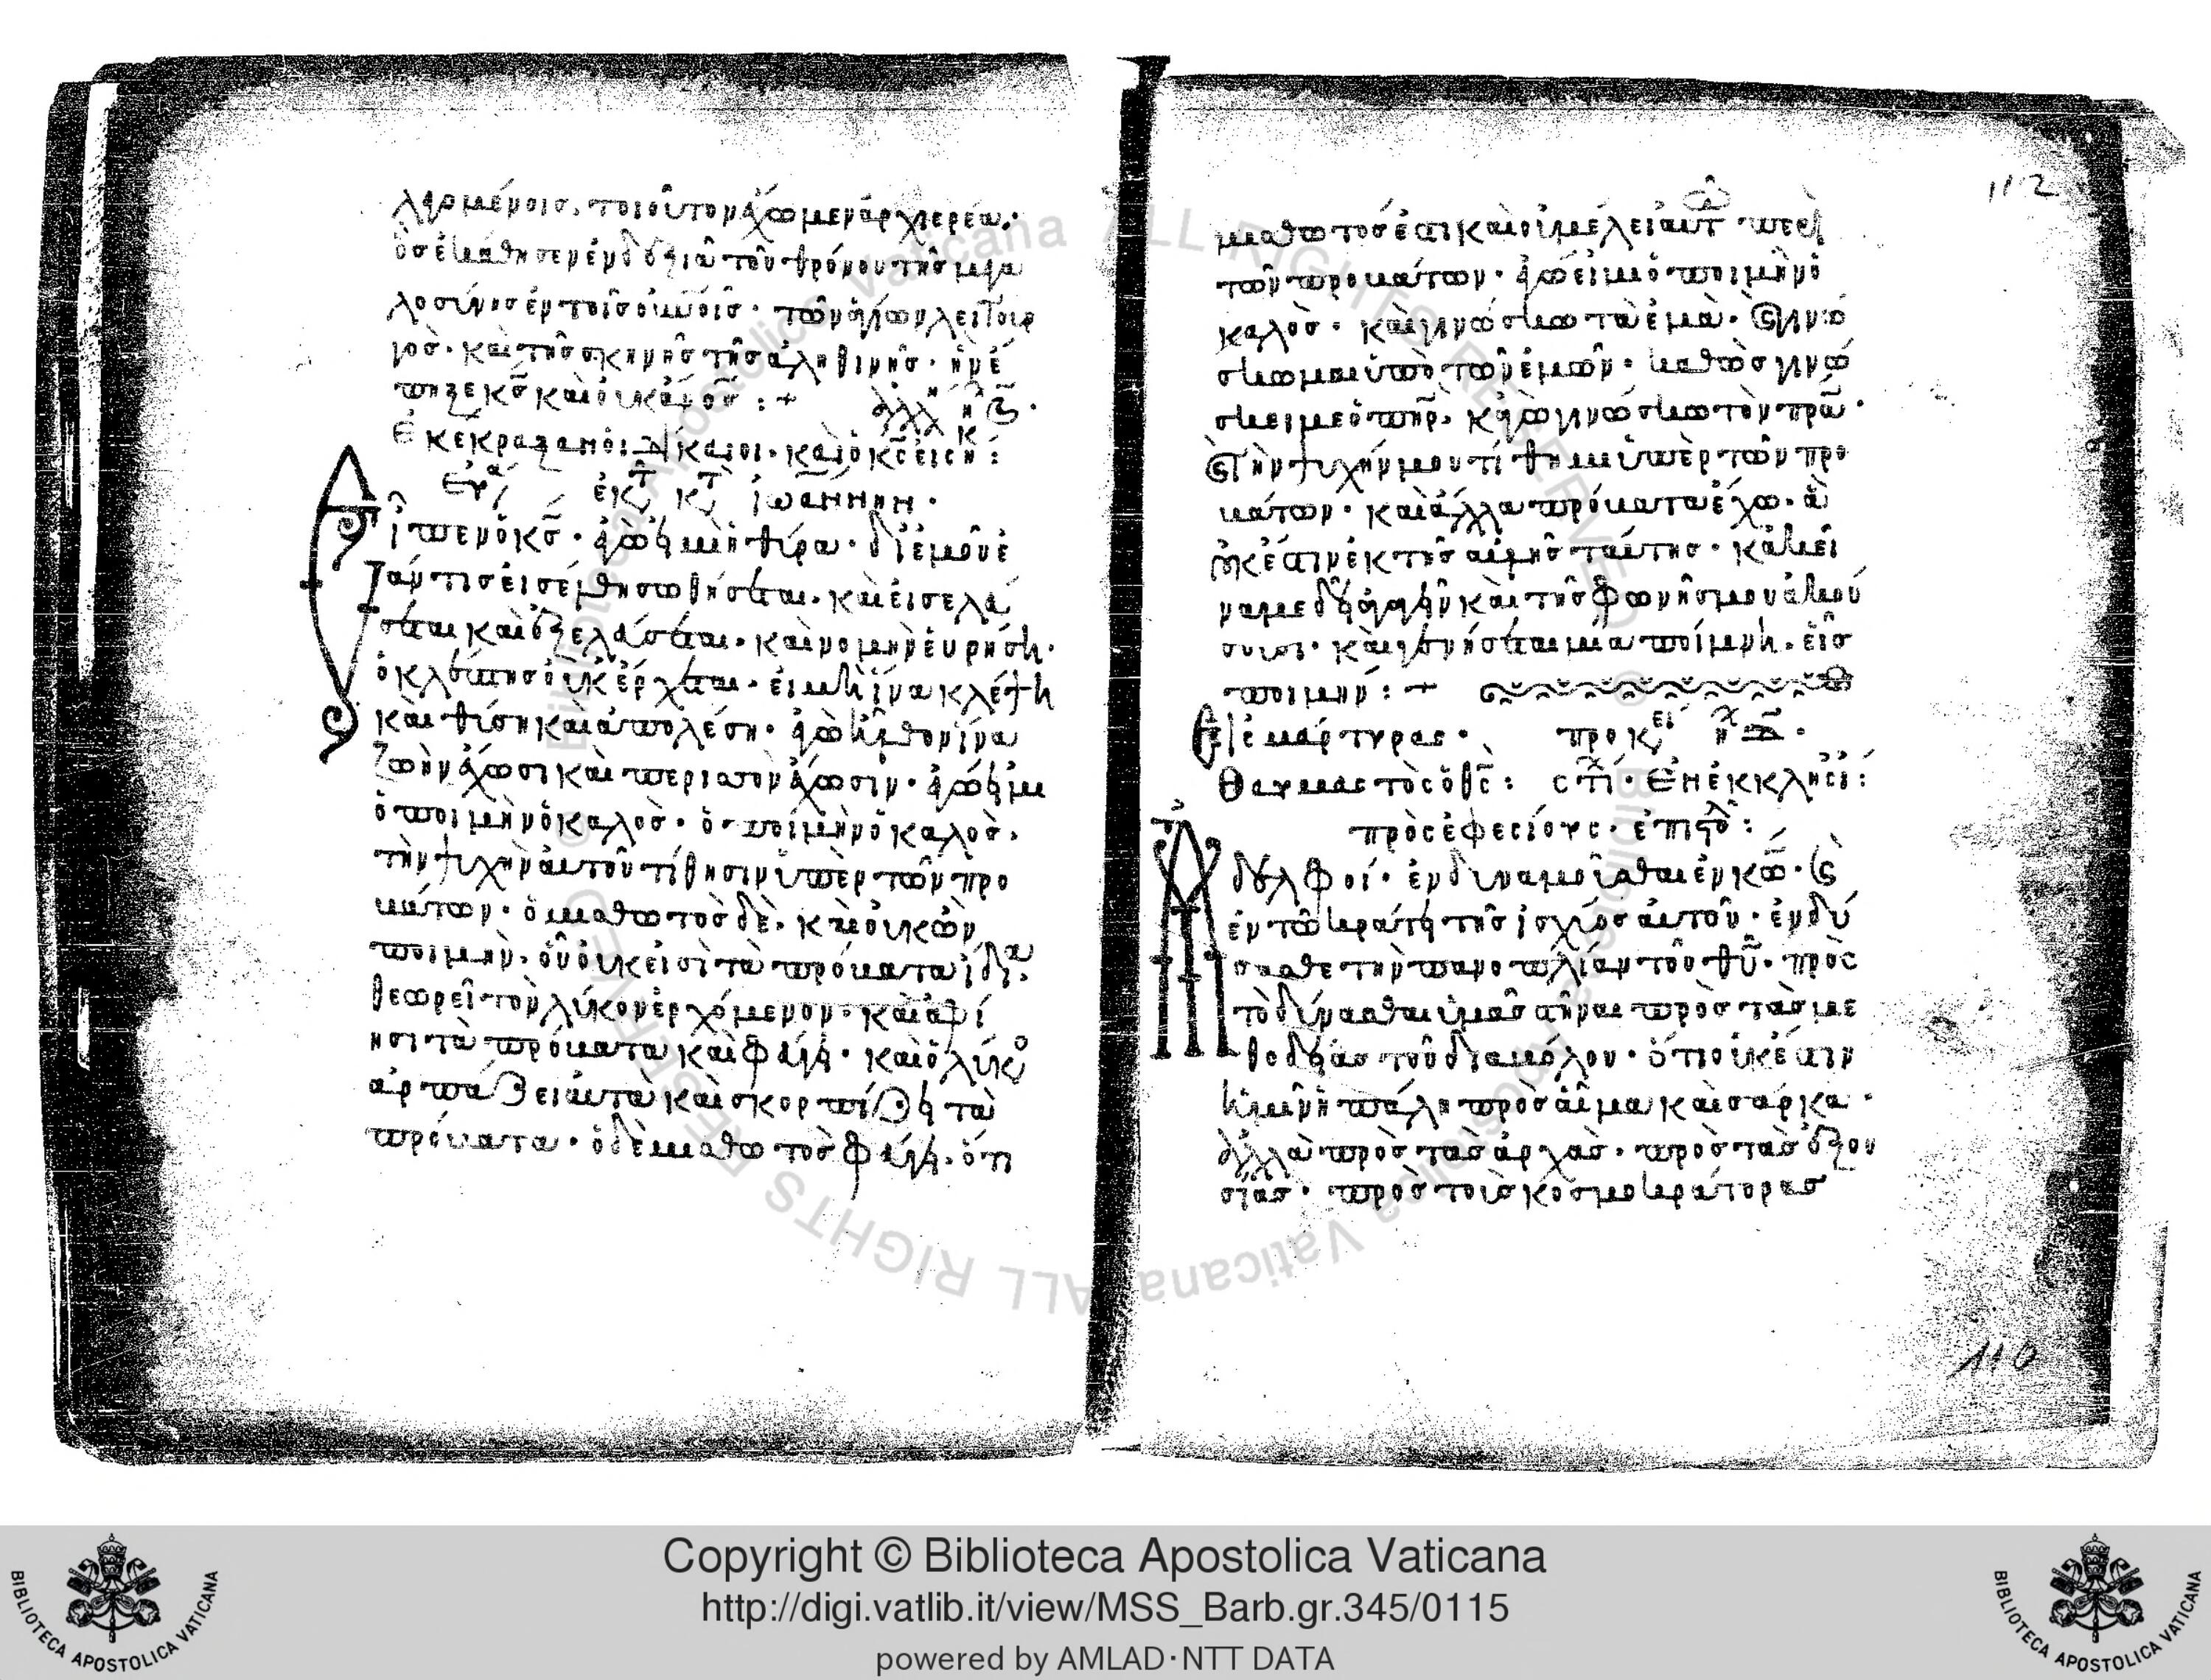 λεγομένοις. τοιοῦτον ἔχωμεν ἀρχιερέα.
ὃς ἐκάθησεν ἐν δεξιᾶ τοῦ θρόνου τῆς μεγα
λοσύνης ἐν τοῖς οὐνοῖς· τῶν ἁγίων λειτουρ
γὸς· καὶ τῆς σκηνῆς τῆς ἀληθινῆς· ἣν ἔ
πηξε κς̄ καὶ οὐκ ἄνος̄ :+
Ἐκέκραξαν οἱ δίκαιοι· καὶ ὁ κς̄ εἰσή:
ἐκ τ κτ ἰωάννην.
Εἶπεν ὁ κς̄· ἐγώ εἰμι ἡ θύρα· δι' ἐμοῦ ἐ
ὰν τις εἰσέλθη σωθήσεται. καὶ εἰσελεύ
σεται καὶ ἐξελεύσεται· καὶ νομὴν εὑρήσει·
ὁ κλέπτης οὐκ ἔρχεται· εἰ μὴ ἵνα κλέψη
καὶ θύση καὶ ἀπολέση· ἐγὼ ἦλθον ἵνα
ζωὴν ἔχωσι καὶ περισσὸν ἔχωσιν· ἐγώ εἰμι
ὁ ποιμὴν ὁ καλὸς· ὁ ποιμὴν ὁ καλὸς.
τὴν ψυχὴν αὐτοῦ τίθησιν ὑπὲρ τῶν προ
βάτων· ὁ μισθωτὸς δὲ. καὶ οὐκ ὢν
ποιμὴν· οὗ οὐκ εἰσὶ τὰ πρόβατα ἴδια.
θεωρεῖ τὸν λύκον ἐρχόμενον· καὶ ἀφί
ησι τὰ πρόβατα καὶ φεύγει· καὶ ὁ λύκος
ἁρπάζει αὐτὰ καὶ σκορπίζει τὰ
πρόβατα· ὁ δὲ μισθωτὸς φεύγει. ὅτι
112
μισθωτός ἐστι καὶ οὐ μέλει αὐτῶ περὶ
τῶν προβάτων· ἐγώ εἰμι ὁ ποιμὴν ὁ
καλὸς· καὶ γινώσκω τὰ ἐμὰ· καὶ γινώ
σκωμαι ὑπὸ τῶν ἐμῶν· καθὼς γινώ
σκει με ὁ πηρ̄. κἀγὼ γινώσκω τὸν πρᾱ·
καὶ τὴν ψυχήν μου τίθημι ὑπὲρ τῶν προ
βάτων· καὶ ἄλλα πρόβατα ἔχω· ἃ
οὐκ ἔστιν ἐκ τῆς αὐλῆς ταύτης· κἀκεῖ
να με δεῖ ἀγαγεῖν καὶ τῆς φωνῆς μου ἀκού
σουσι· καὶ γενήσεται μία ποίμνη. εἷς
ποιμήν :+
Εἰς μάρτυρας· προκει
Θαυμαστὸς ὁ θς̄: στι· Ἐν ἐκκλησι:
πρὸς ἐφεσίους. ἐπιστο:
Ἀδελφοί· ἐνδυναμοῦσθαι ἐν κω̄· καὶ
ἐν τῶ κράτει τῆς ἰσχύος αὐτοῦ· ἐνδύ
σασθε τὴν πανοπλίαν τοῦ θῡ· πρὸς
τὸ δύνασθαι ὑμᾶς στῆναι πρὸς τὰς με
θοδείας τοῦ διαβόλου· ὅτι οὐκ ἔστιν
ἡμῖν ἡ πάλη πρὸς αἷμα καὶ σάρκα·
ἀλλὰ πρὸς τὰς ἀρχὰς· πρὸς τὰς ἐξου
σίας· πρὸς τοὺς κοσμοκράτορας
110
Copyright © Biblioteca Apostolica Vaticana
http://digi.vatlib.it/view/MSS_Barb.gr.345/0115
powered by AMLAD·NTT DATA
BIBLIOTECA APOSTOLICA VATICANA
BIBLIOTECA APOSTOLICA VATICANA